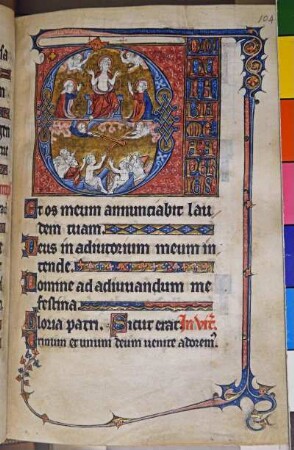 104
Et os meum annunciabit lau
dem tuam.
Deus in adiutorium meum in
tende.
Domine ad adiuvandum me
festina.
Gloria patri. Sicut erat.
et unum deum venite adorem